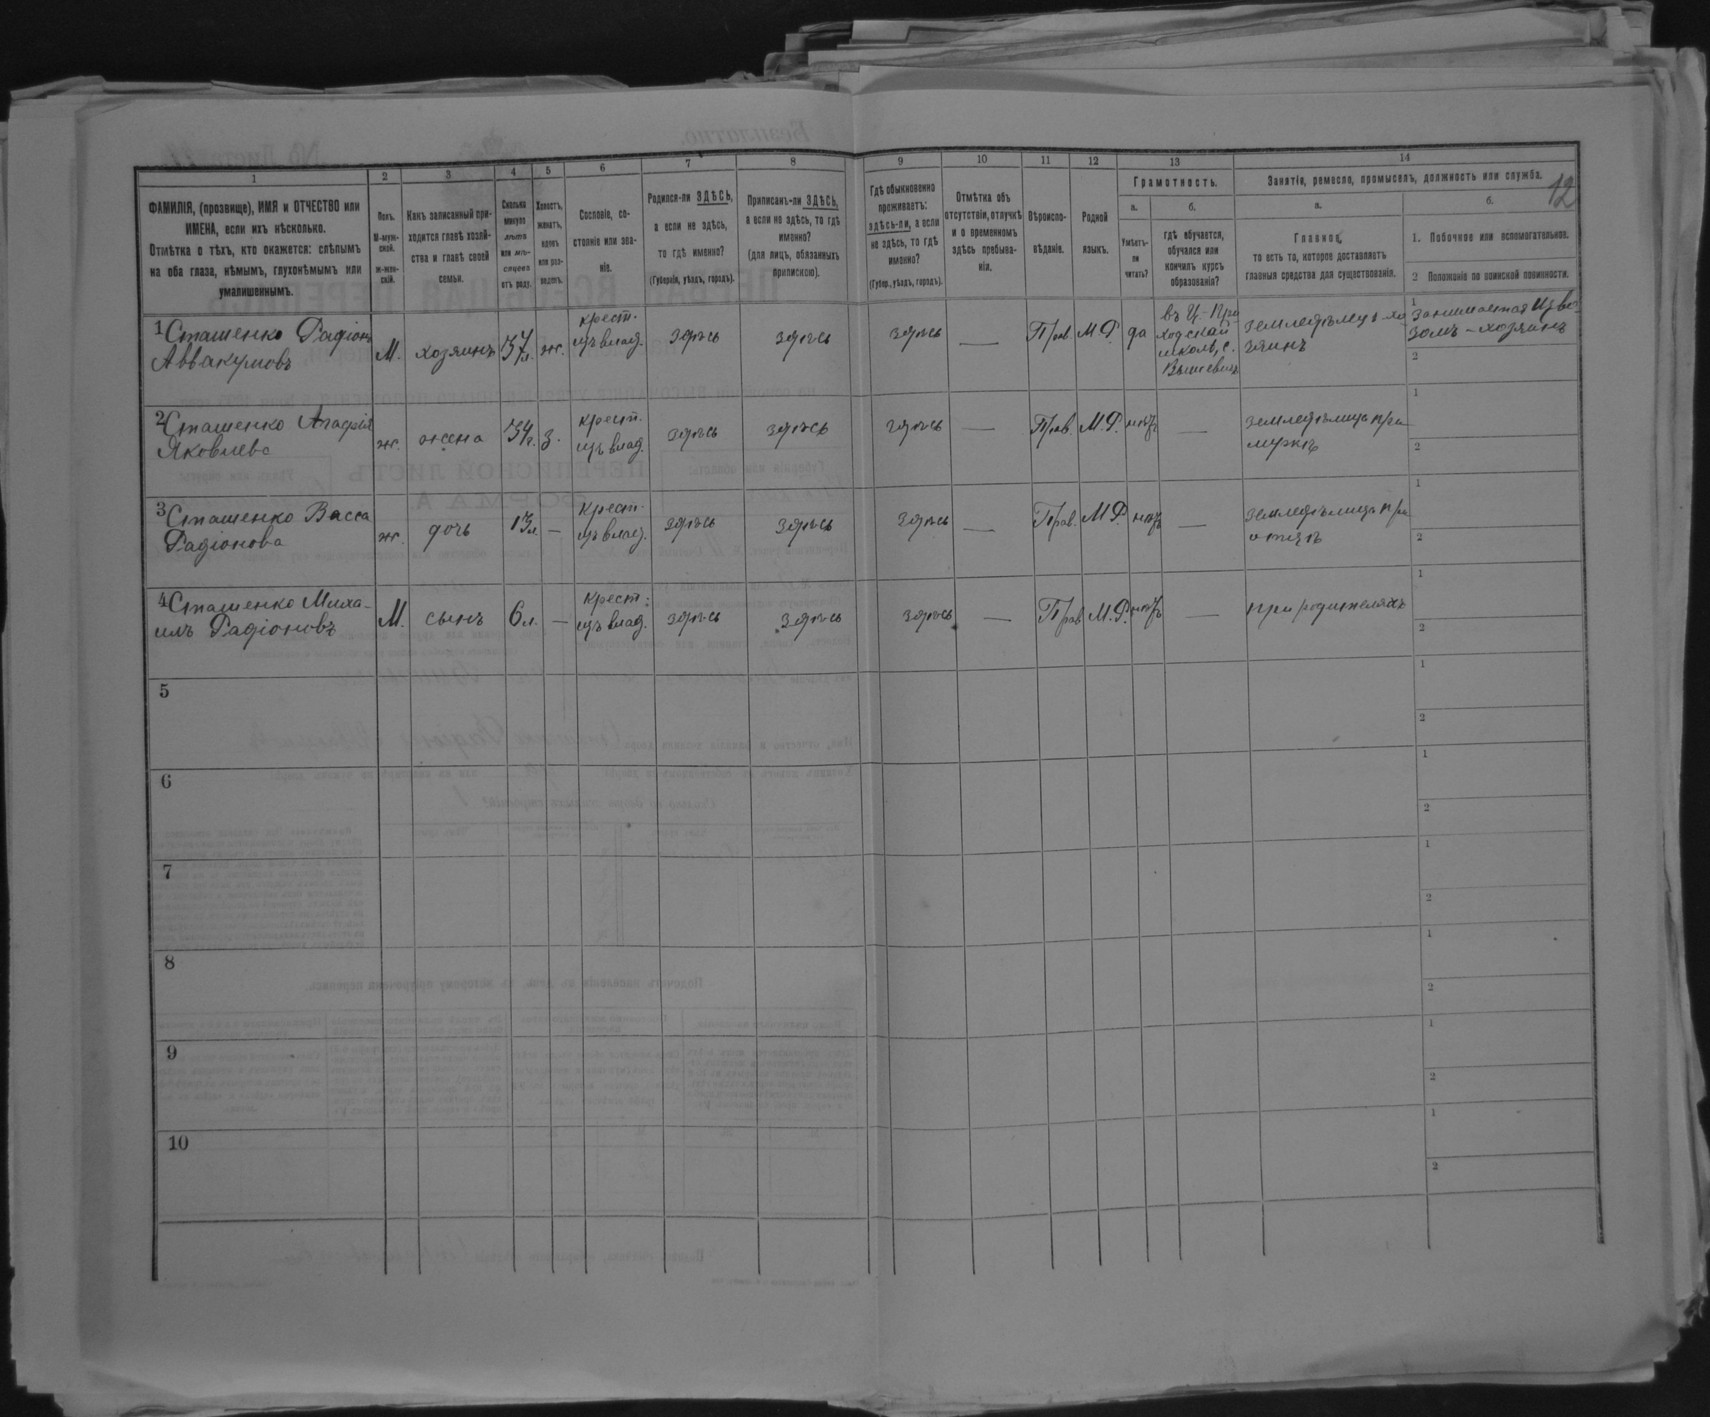 12
1 2 3 4 5 6 7 8 9 10 11 12 13 14
ФАМИЛІЯ, (прозвище), ИМЯ и ОТЧЕСТВО или
ИМЕНА, если ихъ нѣсколько.
Отмѣтка о тѣхъ, кто окажется: слѣпымъ
на оба глаза, нѣмымъ, глухонѣмымъ или
умалишеннымъ.
Полъ.
М-муж-
ской.
ж-жен-
скій.
Какъ записанный при-
ходится главѣ хозяй-
ства и главѣ своей
семьи.
Сколько
минуло
лѣтъ
или мѣ-
сяцевъ
отъ роду.
Холостъ,
женатъ,
вдовъ
или раз-
веденъ.
Сословіе, со-
стояніе или зва-
ніе.
Родился-ли ЗДѢСЬ,
а если не здѣсь,
то гдѣ именно?
(Губернія, уѣздъ, городъ).
Приписанъ-ли ЗДѢСЬ,
а если не здѣсь, то гдѣ
именно?
(для лицъ, обязанныхъ
припискою).
Гдѣ обыкновенно
проживаетъ:
здѣсь-ли, а если
не здѣсь, то гдѣ
именно?
(Губер., уѣздъ, городъ).
Отмѣтка объ
отсутствіи, отлучкѣ
и о временномъ
здѣсь пребыва-
ніи.
Вѣроиспо-
вѣданіе.
Родной
языкъ.
Грамотность.
а.
Умѣетъ-
ли
читать?
б.
гдѣ обучается,
обучался или
кончилъ курсъ
образованія?
Занятіе, ремесло, промыселъ, должность или служба.
а.
Главное,
то есть то, которое доставляетъ
главныя средства для существованія.
б.
1. Побочное или вспомогательное.
2 Положеніе по воинской повинности.
1 Сташенко Радіонъ
Аввакумовъ
М.
хозяинъ
37 л.
ж.
крест.
изъ влад.
здѣсь
здѣсь
здѣсь
—
Прав.
М.Р.
да
въ Ц.-При
ходской
школѣ, с.
земледѣлецъ хо
зяинъ
1 занимается изво
зомъ – хозяинъ
2
2 Сташенко Агафія
Яковлева
ж.
жена
34 г.
з.
крест.
изъ влад.
здѣсь
здѣсь
здѣсь
—
Прав.
М.Р.
нѣтъ
—
земледѣлица при
мужѣ
1
2
3 Сташенко Васса
Радіонова
ж.
дочь
13 л.
—
Крест.
изъ влад.
здѣсь
здѣсь
здѣсь
—
Прав.
М.Р.
нѣтъ
—
земледѣлица при
отцѣ
1
2
4 Сташенко Миха-
илъ Радіоновъ
М.
сынъ
6 л.
—
крест.
изъ влад.
здѣсь
здѣсь
здѣсь
—
Прав
М.Р.
нѣтъ
—
при родителяхъ
1
2
5
1
2
6
1
2
7
1
2
8
1
2
9
1
2
10
1
2